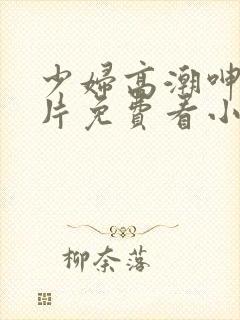 少婦高潮呻
片免費看小
柳奈落